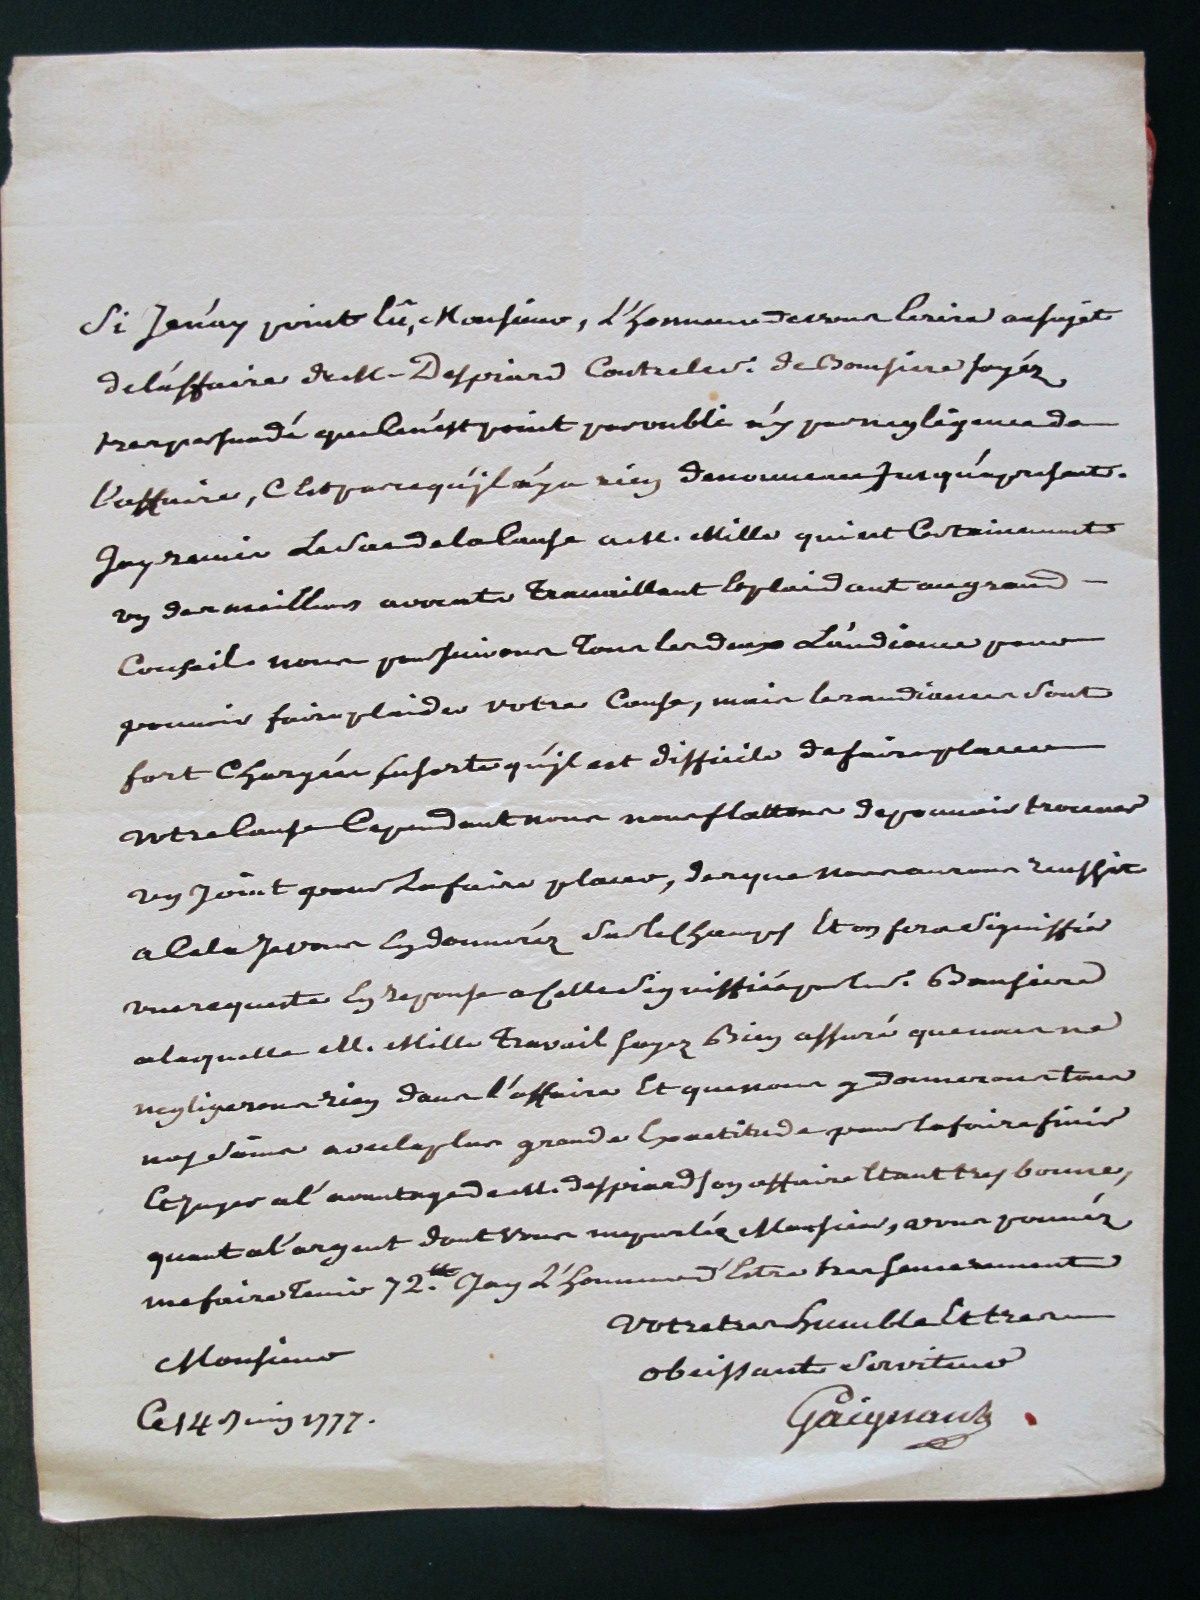 Si Je n'ay point Eû, Monsieur, L'honneur de vous Ecrire au sujet
de l'affaire de M. Despiard Contre le Sr. de Bousiere soyéz
tres persuadé que Ce n'est point par oubli n'y par negligence de
l'affaire, C'est parce qu'jl n'y a rien de nouveau Jusqu'apresent.
J'ay remis Le Sac de la Cause a M. Mille qui est Certainement
un des meilleurs avocats Travaillant Et plaidant au grand
Conseil. nous poursuivons Tous les deux L'audiance pour
pouvoir faire plaider votre Cause, mais les audiances sont
fort Chargées, Ensorte qu'jl est difficile de faire placer
votre Cause Cependant nous nous flattons de pouvoir trouver
un Joint pour La faire placer, des que nous aurons reussit
a Cela Je vous En donneréz sur le Champs Et on fera signiffier
une requeste En reponse a Celle signiffiée par le Sr. Bousiere
a laquelle M. Mille Travail soyez Bien assuré que nous ne
negligerons rien dans l'affaire Et que nous y donnerons tous
nos soins avec la plus grande Exactitude pour la faire finir
Et Juger a l'avantage de M. despiard son affaire Etant tres bonne,
quant a l'argent dont vous me parléz Monsieur, vous pouvéz
me faire Tenir 72.tt J'ay L'honneur d'Estre tres sincerement
Monsieur
votre tres humble Et tres
obeissant Serviteur
Ce 14 Juin 1777.
Gaignant